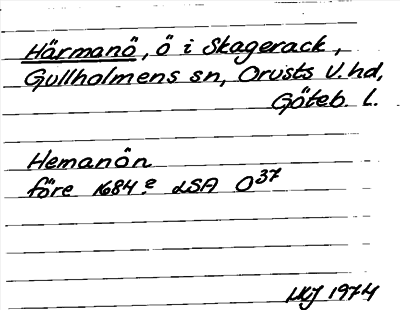 Härmanö, ö i Skagerack,
Gullholmens sn, Orusts V. hd,
Göteb. l.
Hemanön
före 1684 e LSA O37
1974